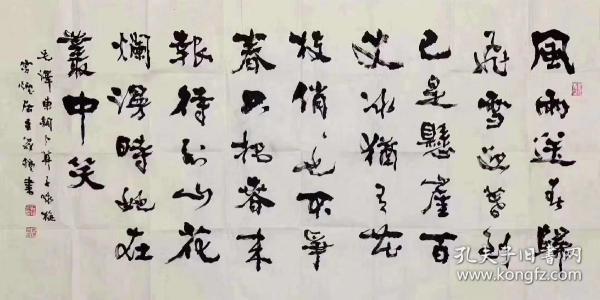 風雨送春歸
飛雪迎春到
已是懸崖百
丈冰猶有花
枝俏〻也不爭
春只把春來
報待到山花
爛漫時她在
叢中笑
毛澤東詞卜算子咏梅
居主 書
孔夫子旧书网
www.kongfz.com